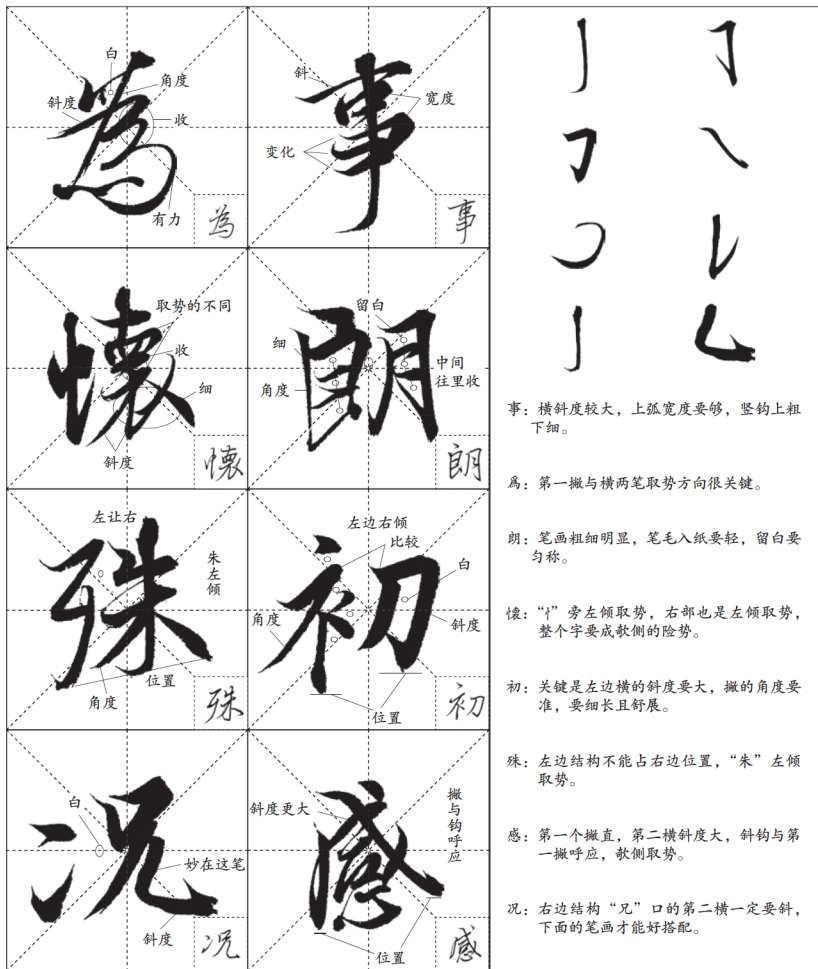 白
角度
斜度
收
有力
為
為
斜
宽度
变化
事
事
取势的不同
收
细
斜度
懷
懷
留白
细
中间
往里收
角度
朗
朗
左让右
朱左倾
位置
角度
殊
殊
左边右倾
比较
白
角度
斜度
位置
初
初
白
妙在这笔
斜度
况
况
斜度更大
撇与钩呼应
位置
感
感
事：横斜度较大，上弧宽度要够，竖钩上粗
下细。
為：第一撇与横两笔取势方向很关键。
朗：笔画粗细明显，笔毛入纸要轻，留白要
匀称。
懷：“忄”旁左倾取势，右部也是左倾取势，
整个字要成欹侧的险势。
初：关键是左边横的斜度要大，撇的角度要
准，要细长且舒展。
殊：左边结构不能占右边位置，“朱”左倾
取势。
感：第一个撇直，第二横斜度大，斜钩与第
一撇呼应，欹侧取势。
况：右边结构“兄”口的第二横一定要斜，
下面的笔画才能好搭配。